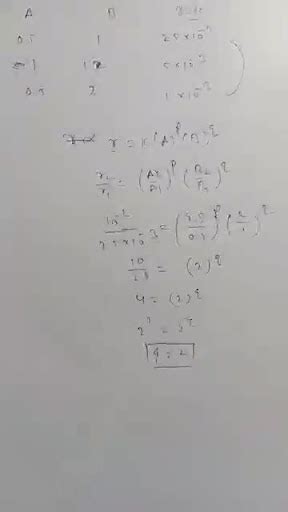 A B Rate
0.5 1 2.5×10⁻³
1 1 5×10⁻³
0.5 2 1×10⁻²
r = K [A]^p [B]^q
r₂/r₁ = (A₂/A₁)^p (B₂/B₁)^q
10⁻²/2.5×10⁻³ = (0.5/0.5)^p (2/1)^q
10/2.5 = (2)^q
4 = (2)^q
2² = 2^q
q = 2